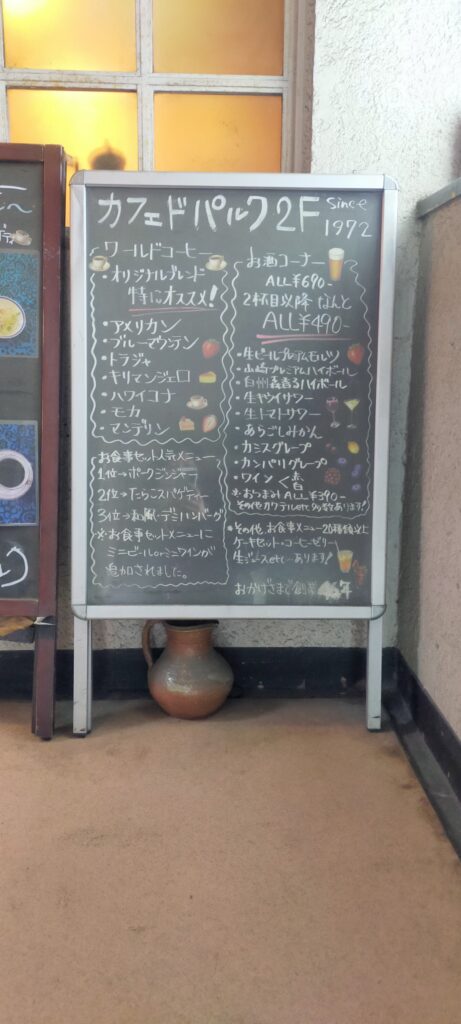 カフェドパルク2F
since
1972
ワールドコーヒー
・オリジナルブレンド
特にオススメ!
・アメリカン
・ブルーマウンテン
・トラジャ
・キリマンジェロ
・ハワイコナ
・モカ
・マンデリン
お食事セット人気メニュー
1位→ポークジンジャー
2位→たらこスパゲティー
3位→和風・デミハンバーグ
※お食事セットメニューに
ミニビールorミニワインが
追加されました。
お酒コーナー
ALL¥690-
2杯目以降 なんと
ALL¥490-
・生ビールプレミアムモルツ
・山崎プレミアムハイボール
・白州森香るハイボール
・生キウイサワー
・生トマトサワー
・あらごしみかん
・カシスグレープ
・カンパリグレープ
・ワイン<赤
白
※おつまみ ALL¥390-
その他カクテルetc 多数あります!
・その他、お食事メニュー20種類以上
ケーキセット・コーヒーゼリー
生ジュースetc…あります!
おかげさまで創業